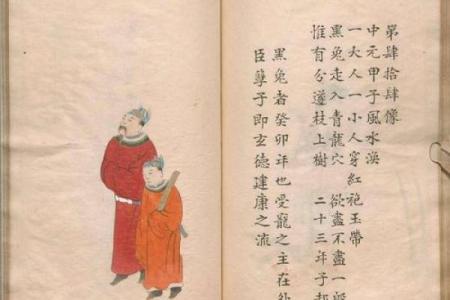 第肆拾肆像
中元甲子風水渙
一大人一小人穿紅袍玉帶
黑兔走入青龍穴 欲盡不盡一
惟有分邊枝上樹 二十三年子
黑兔者癸卯年也受寵之主在外
臣孽子即玄德建康之流